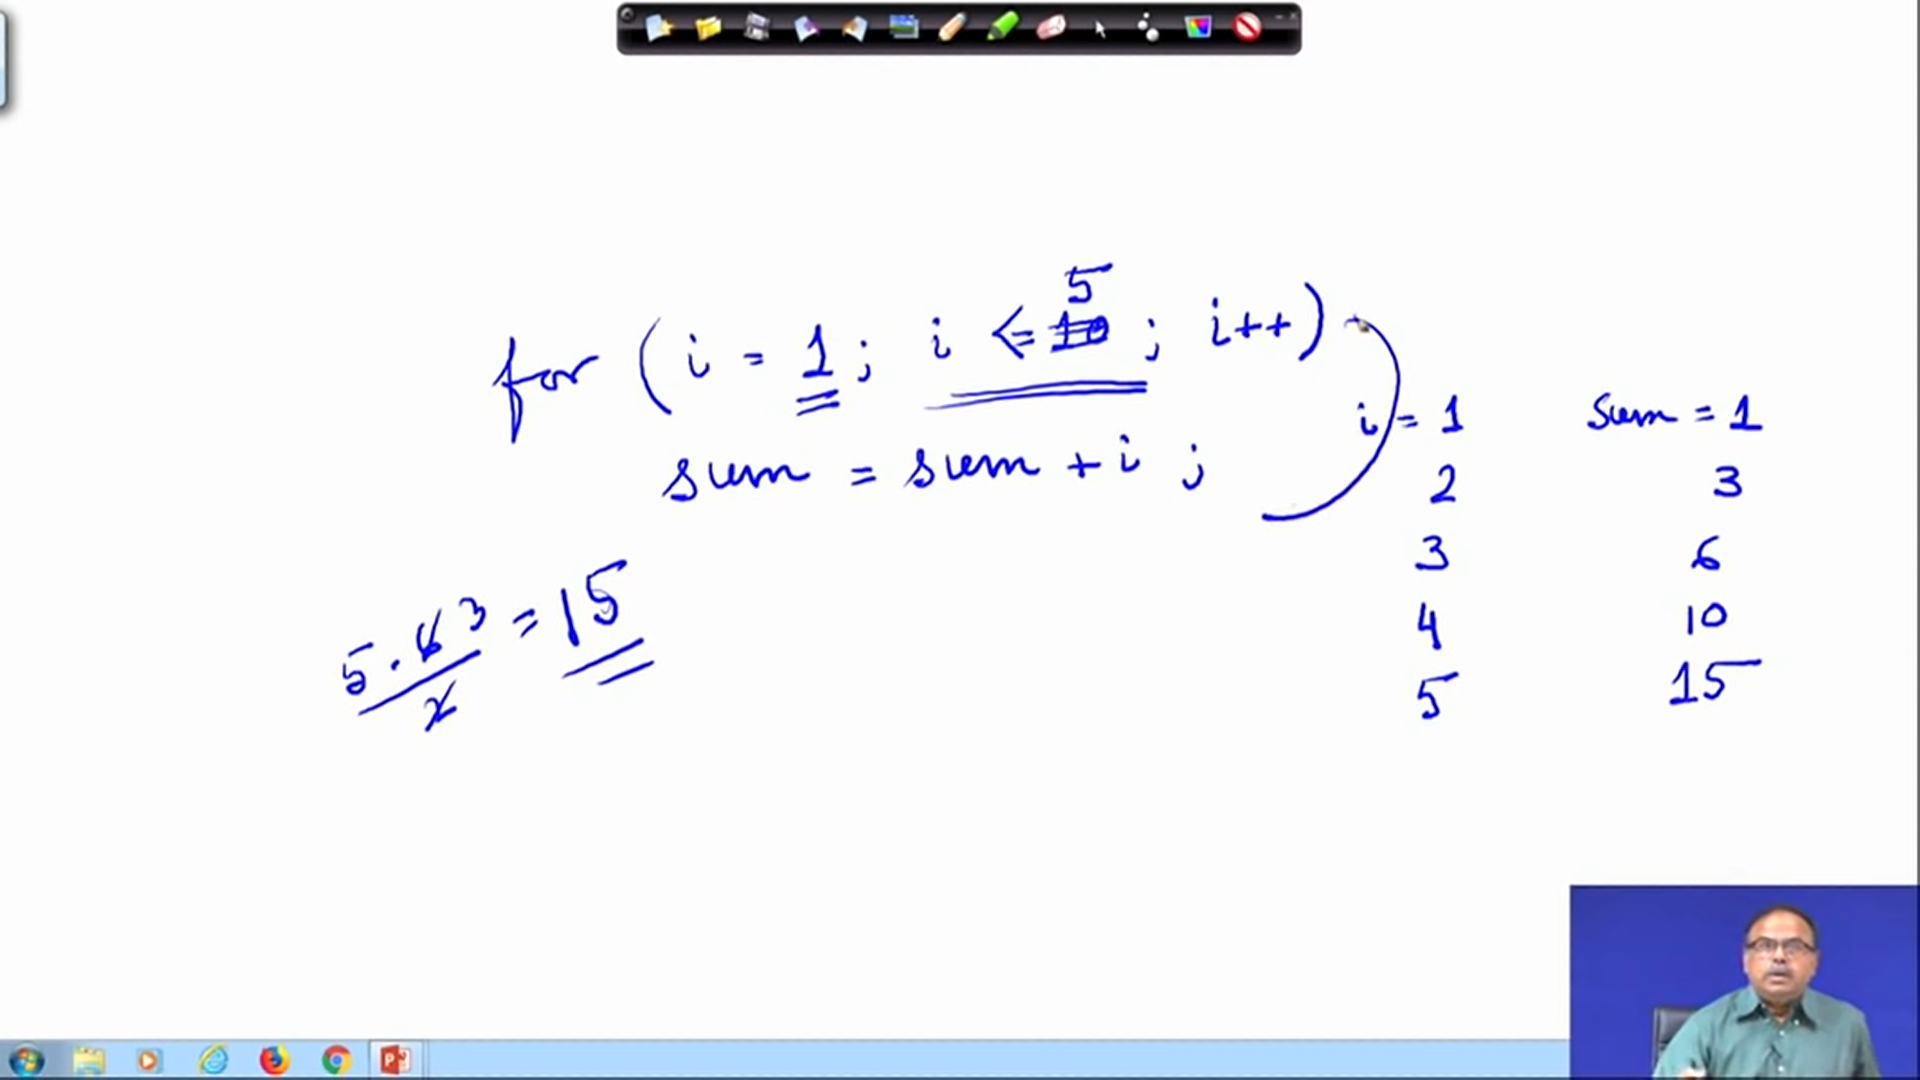 for ( i = 1 ; i <= 10 5 ; i++ )
sum = sum + i ;
i = 1 sum = 1
2 3
3 6
4 10
5 15
5 . 6 3 / 2 = 15